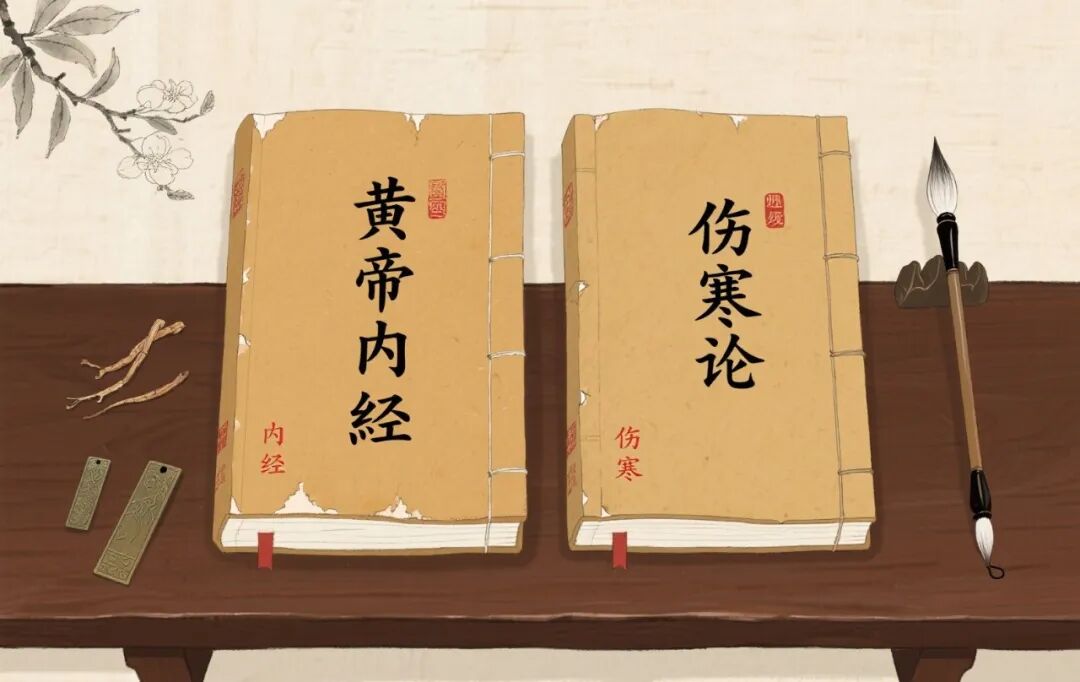 黄帝内經
内经
伤寒论
伤寒